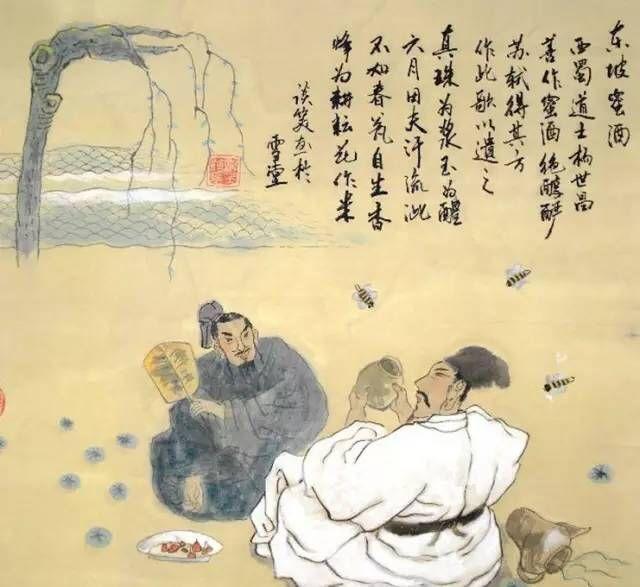 东坡蜜酒
西蜀道士杨世昌
善作蜜酒绝醇酽
苏轼得其方
作此歌以遗之
真珠为浆玉为醴
六月田夫汗流泚
不如春瓮自生香
蜂为耕耘花作米
谈笑画於
雪堂